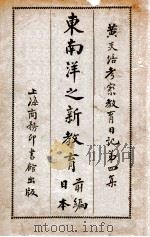 黃炎培考察教育日記第四集
東南洋之新教育
前編
日本
上海商務印書館出版